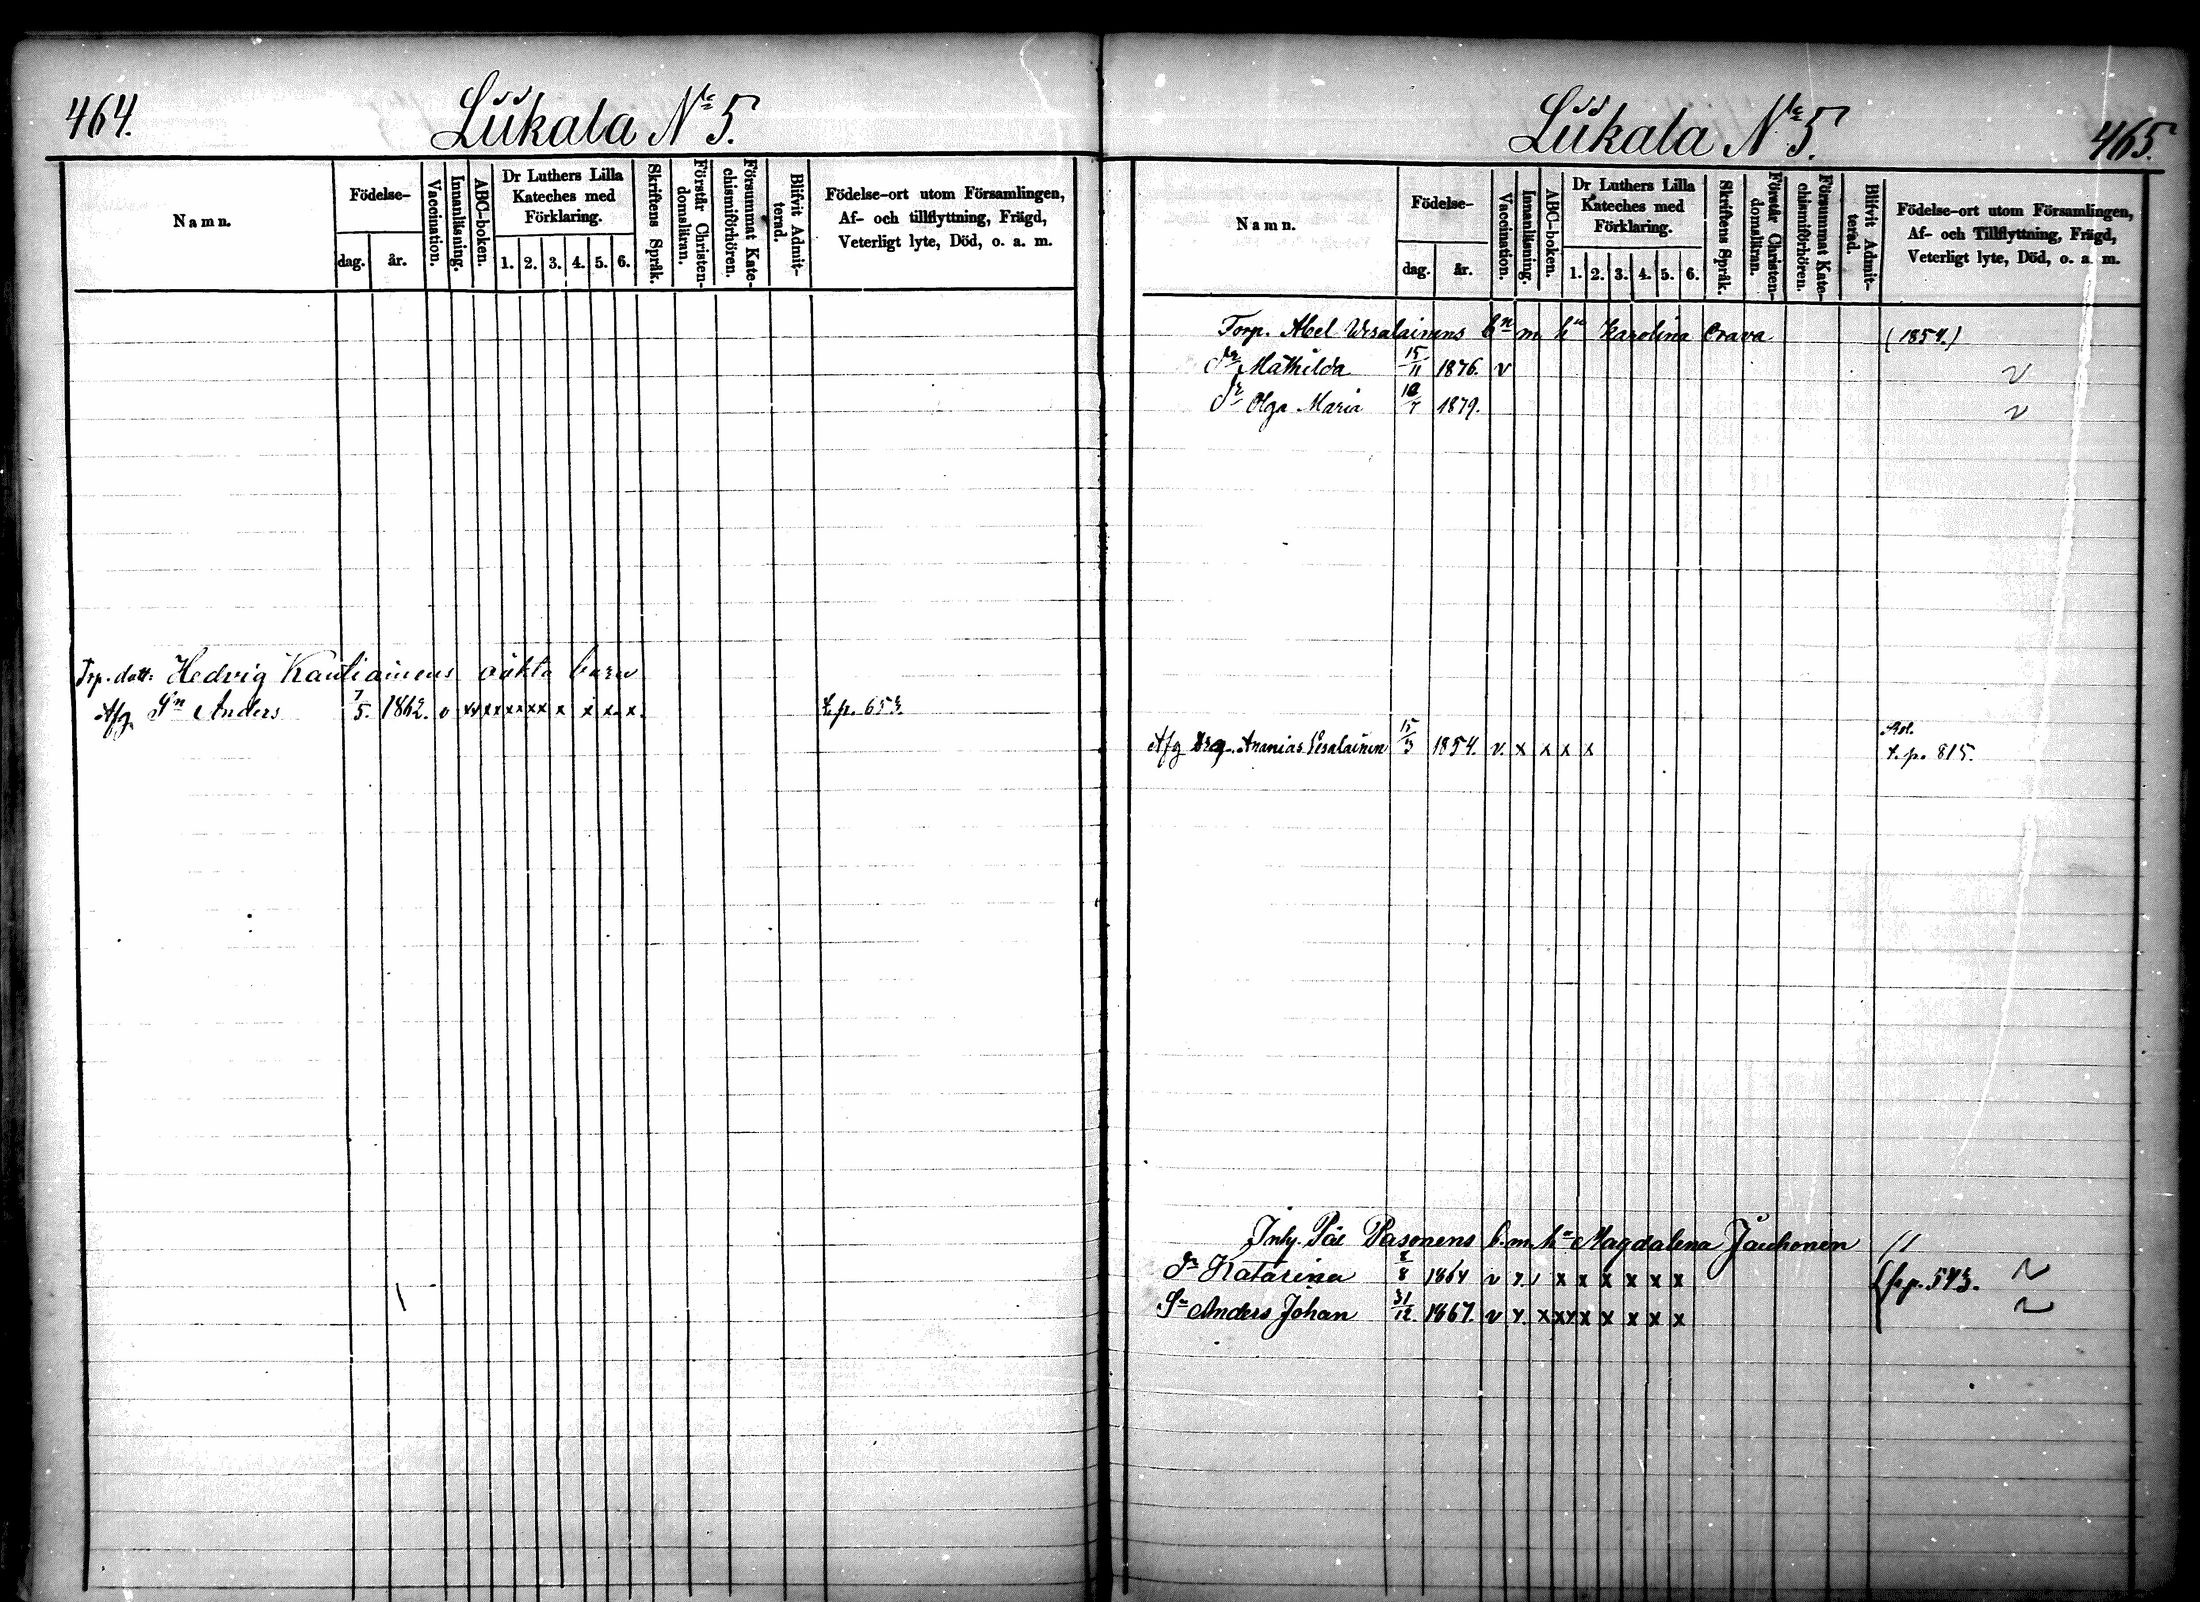 464.
Liikala № 5.
Namn.
Födelse-
dag.
år.
Vaccination.
Innanläsning.
ABC-boken.
Dr Luthers Lilla
Kateches med
Förklaring.
1. 2. 3. 4. 5. 6.
Skriftens Språk.
Förstår Christen-
domsläran.
Försummat Kate-
chismiförhören.
Blifvit Admit-
terad.
Födelse-ort utom Församlingen,
Af- och tillflyttning, Frägd,
Veterligt lyte, Död, o. a. m.
Trp. dott: Hedvig Kautiainens oäkta barn
Afg. Sn Anders 7/5. 1862. v xx xx xx xx x x x x. t.p. 653.
Liikala № 5.
465.
Namn.
Födelse-
dag.
år.
Vaccination.
Innanläsning.
ABC-boken.
Dr Luthers Lilla
Kateches med
Förklaring.
1. 2. 3. 4. 5. 6.
Skriftens Språk.
Förstår Christen-
domsläran.
Försummat Kate-
chismiförhören.
Blifvit Admit-
terad.
Födelse-ort utom Församlingen,
Af- och Tillflyttning, Frägd,
Veterligt lyte, Död, o. a. m.
Torp. Abel Vesalainens bn m hu Karolina Orava (1854.)
Dr Mathilda 15/11 1876. v
Dr Olga Maria 1879.
Afg Drg. Ananias Vesalainen 15/3 1854. v. x x x x t.p. 815.
Inh. Pål Pasonens b. m. hu Magdalena Jauhonen //
Dr Katarina 8/8 1864 v x x x x x x x fr p. 543.
Sn Anders Johan 31/12. 1867. v x. x x x x x x x x